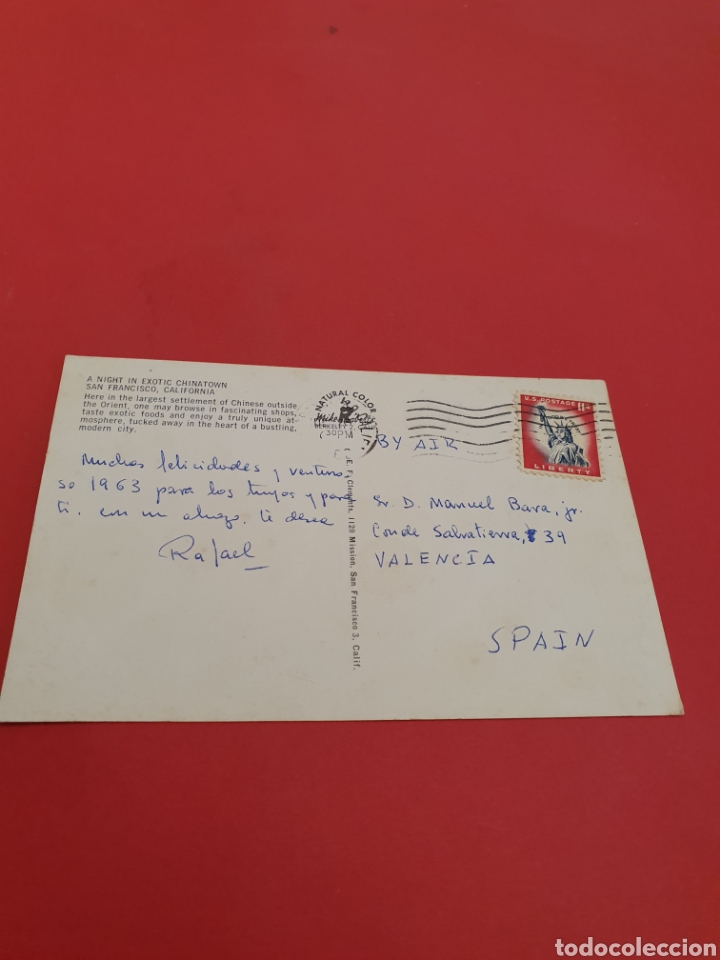 A NIGHT IN EXOTIC CHINATOWN
SAN FRANCISCO, CALIFORNIA
Here in the largest settlement of Chinese outside
the Orient, one may browse in fascinating shops,
taste exotic foods and enjoy a truly unique at-
mosphere, tucked away in the heart of a bustling,
modern city.
Muchas felicidades y venturo
so 1963 para los tuyos y para
ti. con un abrazo, te desea
Rafael
NATURAL COLOR
BERKELEY
30PM
E. F. Clements, 1120 Mission, San Francisco 3, Calif.
U.S. POSTAGE 11¢
LIBERTY
BY AIR
Sr. D. Manuel Bava, jr.
Conde Salvatierra, 39
VALENCIA
SPAIN
todocoleccion